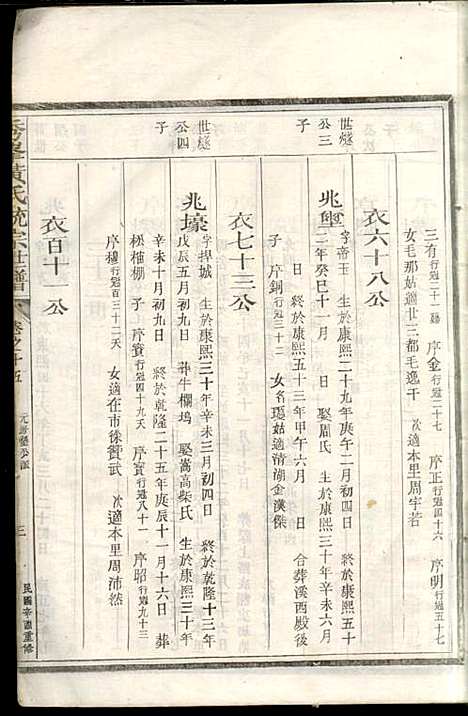 三有行冠二十一殤 序金行冠二十七 序正行冠四十六 序明行冠五十七
女毛那姑適廿三都毛逸千 次適本里周宇若
衣六十八公
世燧公三子
兆壐字帝玉 生於康熙二十九年庚午二月初四日 終於康熙五十
二年癸巳十一月 日 娶周氏 生於康熙三十年辛未六月
日 終於康熙五十三年甲午六月 日 合葬溪西殿後
子 序銅行冠三十二 女名璁姑適清湖金漢傑
衣七十三公
世燧公四子
兆壕字捍城 生於康熙三十年辛未三月初四日 終於乾隆十三年
戊辰五月初九日 葬牛欄塢 娶嵩高柴氏 生於康熙三十年
辛未十月初九日 終於乾隆二十五年庚辰十一月十六日 葬
松柚棚 子 序賓行冠四十九夭 序寳行冠八十一 序昭行冠九十三
序穗行冠百三十二夭 女適在市徐贊武 次適本里周沛然
衣百十一公
黃氏統宗世譜 卷之十五 三 民國辛酉重修